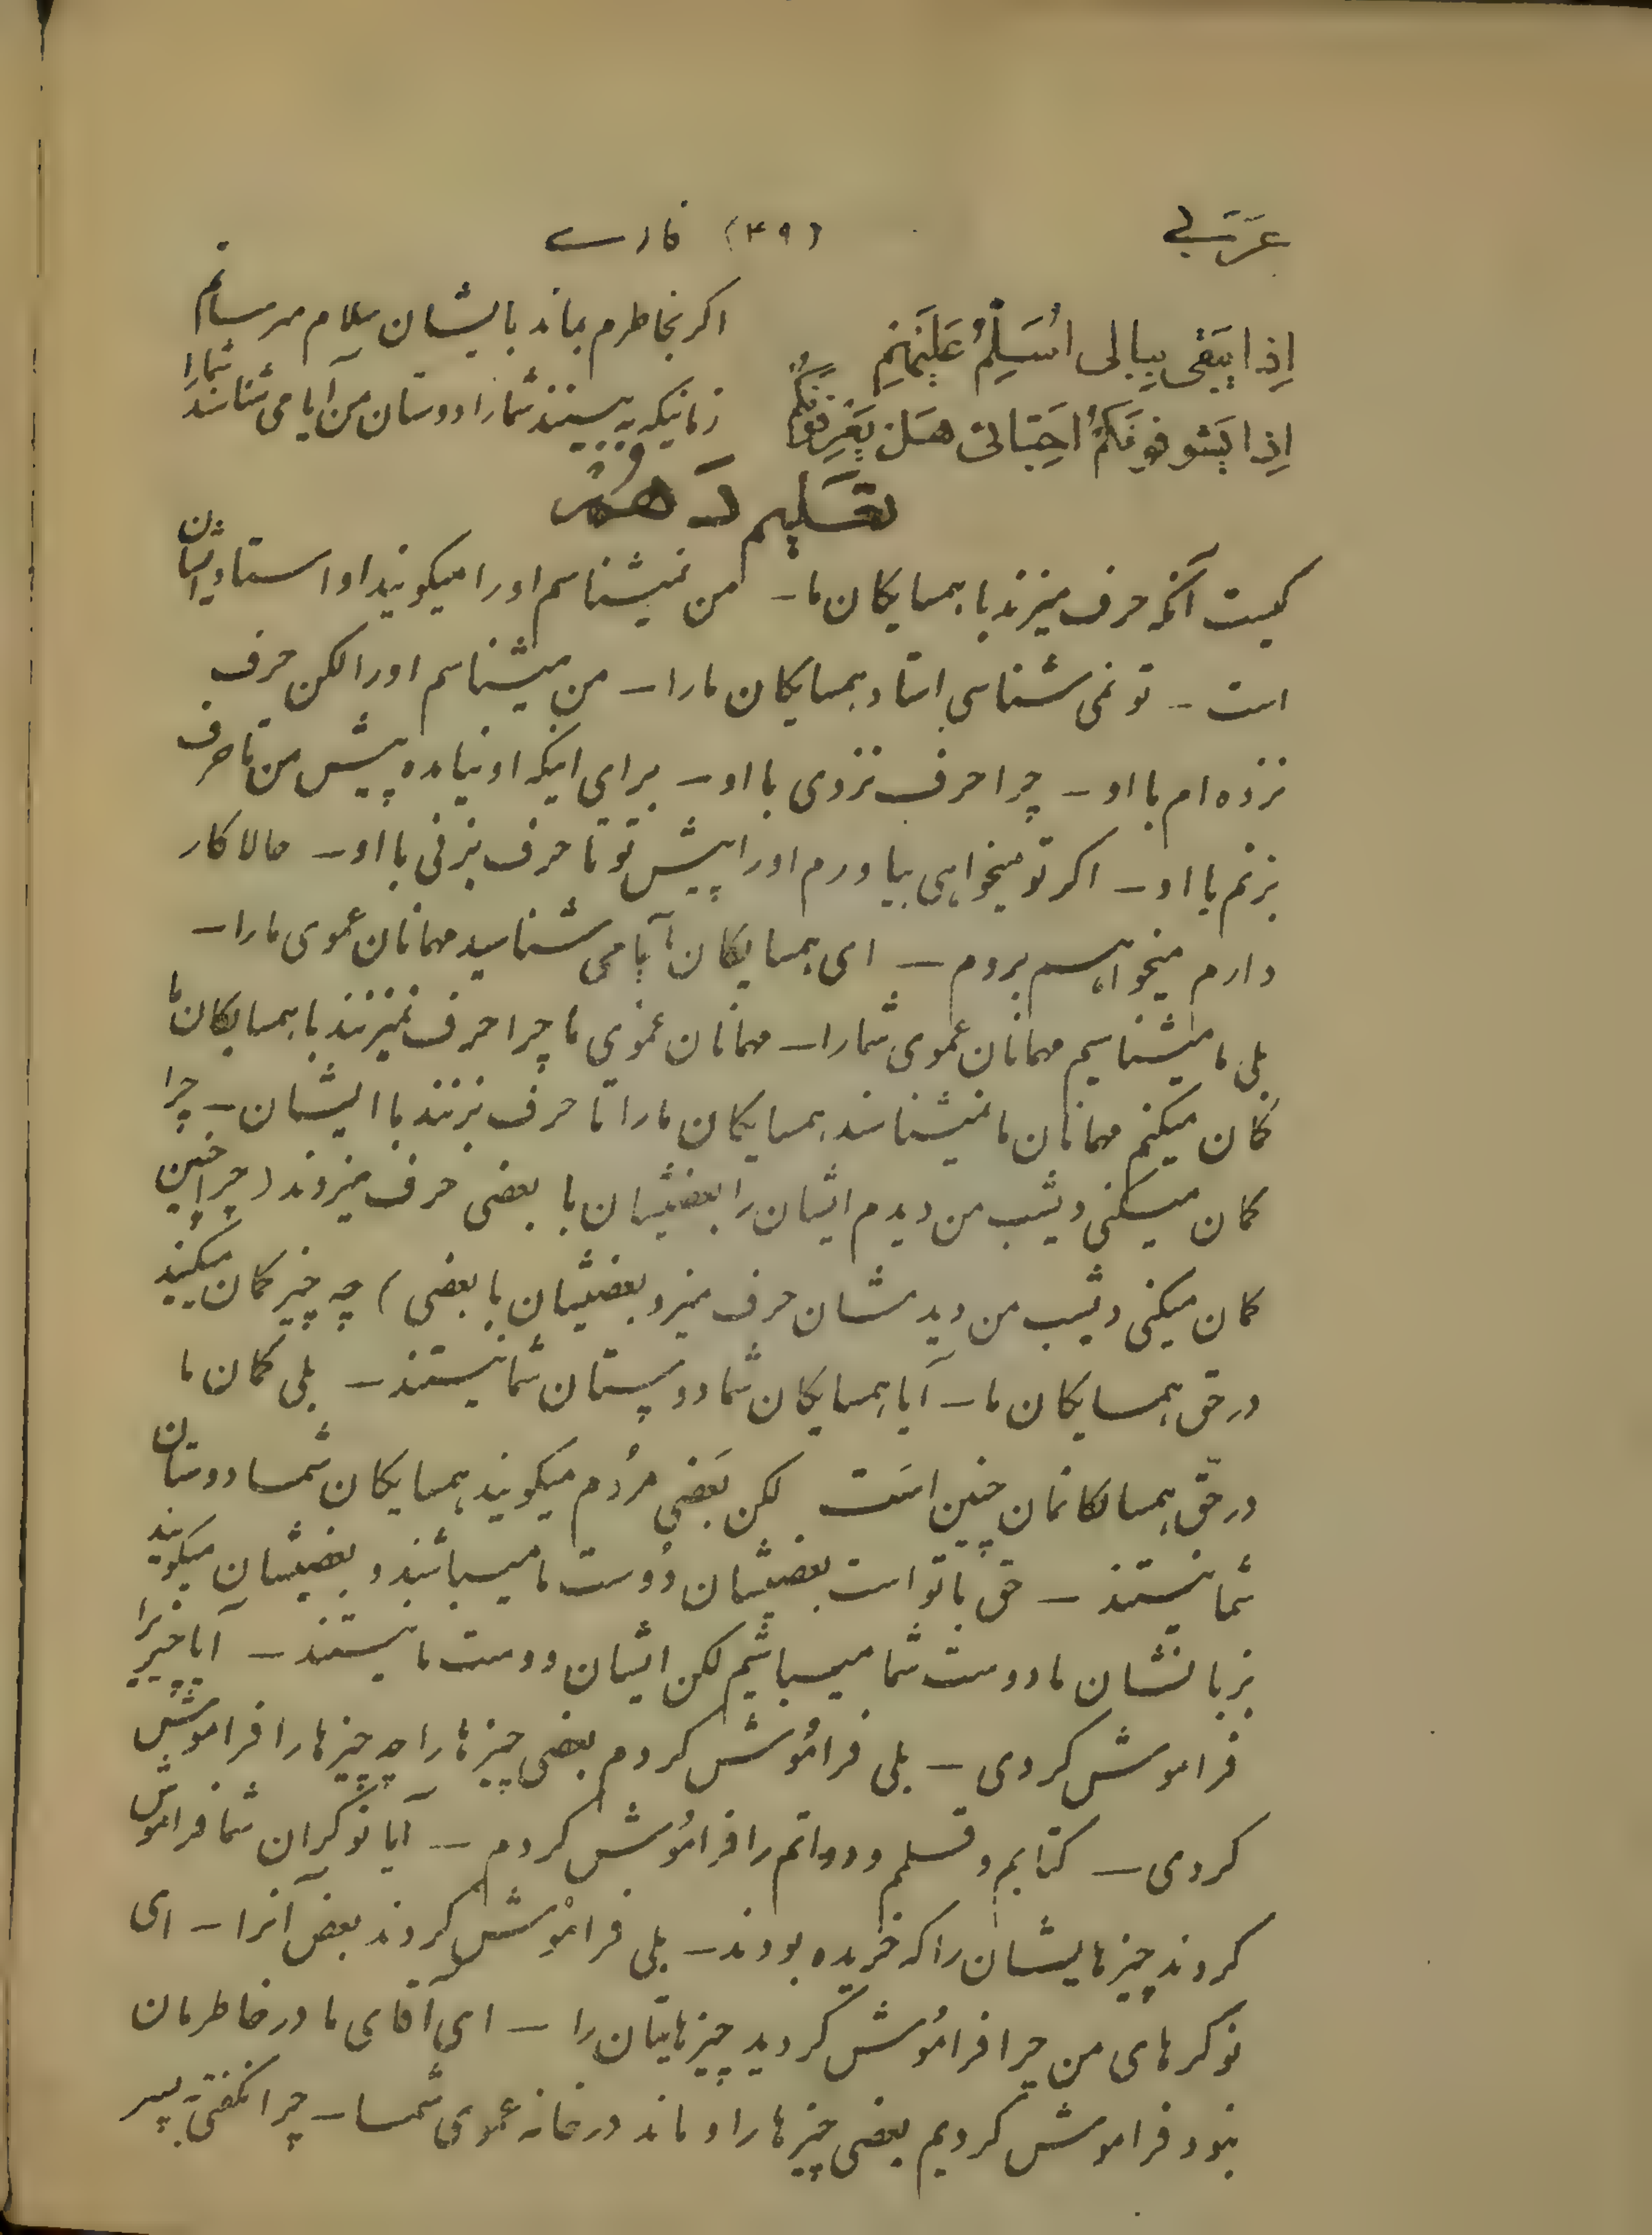 عَرَبی (۴۹) فارسے
اِذا یَبْقی بِبالی اُسَلِّمُ عَلَیْهِمْ اکر بخاطرم بماند بایشان سلام میرسانم
اِذا یَشوفونَکُمْ اَحِبّائی هَل یَعْرِفونَکُمْ زمانیکه به بینند شمارا دوستان من آیا می شناسند شمارا
تعلیم دَهُمْ
کیست آنکه حرف میزند با همسایکان ما ــ من نمیشناسم اورا میکویند او استاد ایشان
است ــ تو نمی شناسی استاد همسایکان مارا ــ من میشناسم اورا لکن حرف
نزده ام با او ــ چرا حرف نزدی با او ــ برای اینکه او نیامده پیش من تا حرف
بزنم با او ــ اکر تو میخواهی بیاورم اورا پیش تو تا حرف بزنی با او ــ حالا کار
دارم میخواهم بروم ــ ای همسایکان ما آیا می شناسید مهمانان عموی مارا ــ
بلی ما میشناسیم مهمانان عموی شمارا ــ مهمانان عموی ما چرا حرف نمیزنند با همسایکان ما
کمان میکنم مهمانان ما نمیشناسند همسایکان مارا تا حرف بزنند با ایشان ــ چرا
کمان میکنی دیشب من دیدم ایشان را بعضیشان با بعضی حرف میزدند (چرا چنین
کمان میکنی دیشب من دیدمشان حرف میزد بعضیشان با بعضی) چه چیز کمان میکنید
در حق همسایکان ما ــ آیا همسایکان شما دوستان شما نیستند ــ بلی کمان ما
در حقّ همسایکانمان چنین است لکن بَعضی مردُم میکویند همسایکان شما دوستان
شما نیستند ــ حق با تو است بعضیشان دوست ما میباشند و بعضیشان میکویند
بزبانشان ما دوست شما میباشیم لکن ایشان دوست ما نیستند ــ آیا چیزیرا
فراموش کردی ــ بلی فرامُوش کردم بعضی چیزهارا چه چیزهارا فراموش
کردی ــ کتابم و قلمم و دواتم را فرامُوش کردم ــ آیا نوکران شما فراموش
کردند چیزهایشان را که خریده بودند ــ بلی فراموش کردند بعض آنرا ــ ای
نوکرهای من چرا فرامُوش کردید چیزهایتان را ــ ای آقای ما در خاطرمان
نبود فراموش کردیم بعضی چیزهارا و ماند در خانه عموی شما ــ چرا نکفتی به پسر